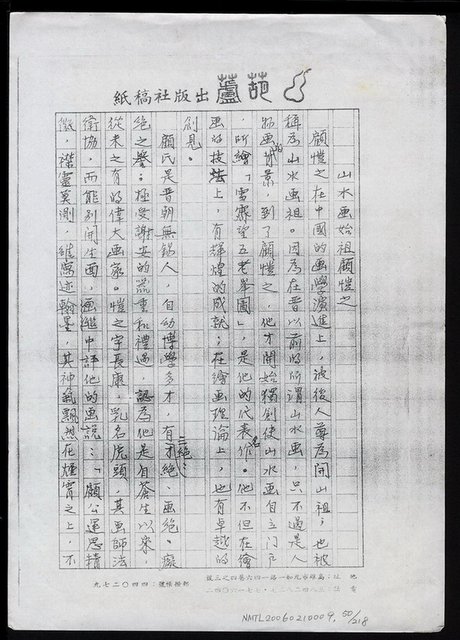 紙稿社版出蘆葩
山水画始祖顧愷之
顧愷之在中國的画學演進上，被後人尊為開山祖；也被
稱為山水画祖。因為在晋以前的所謂山水画，只不過是人
物画的背景，到了顧愷之，他才開始獨創使山水画自立門戶
，所繪「雪霽望五老峯圖」，是他的代表名作。他不但在繪
画的技法上，有輝煌的成就；在繪画理論上，也有卓越的
創見。
顧氏是晋朝無錫人，自幼博學多才，有三絕：才絕 画絕。癡
絕之譽；極受謝安的器重和禮遇 認為他是自蒼生以來，
從未之有的偉大画家。愷之字長康，乳名虎頭，其画師法
衛協，而能别開生面，画繼中評他的画說：「顧公運思精
微，襟靈莫測，雖寄迹翰墨，其神氣飄然在煙霄之上，不
NMTL20060210009, 50/218